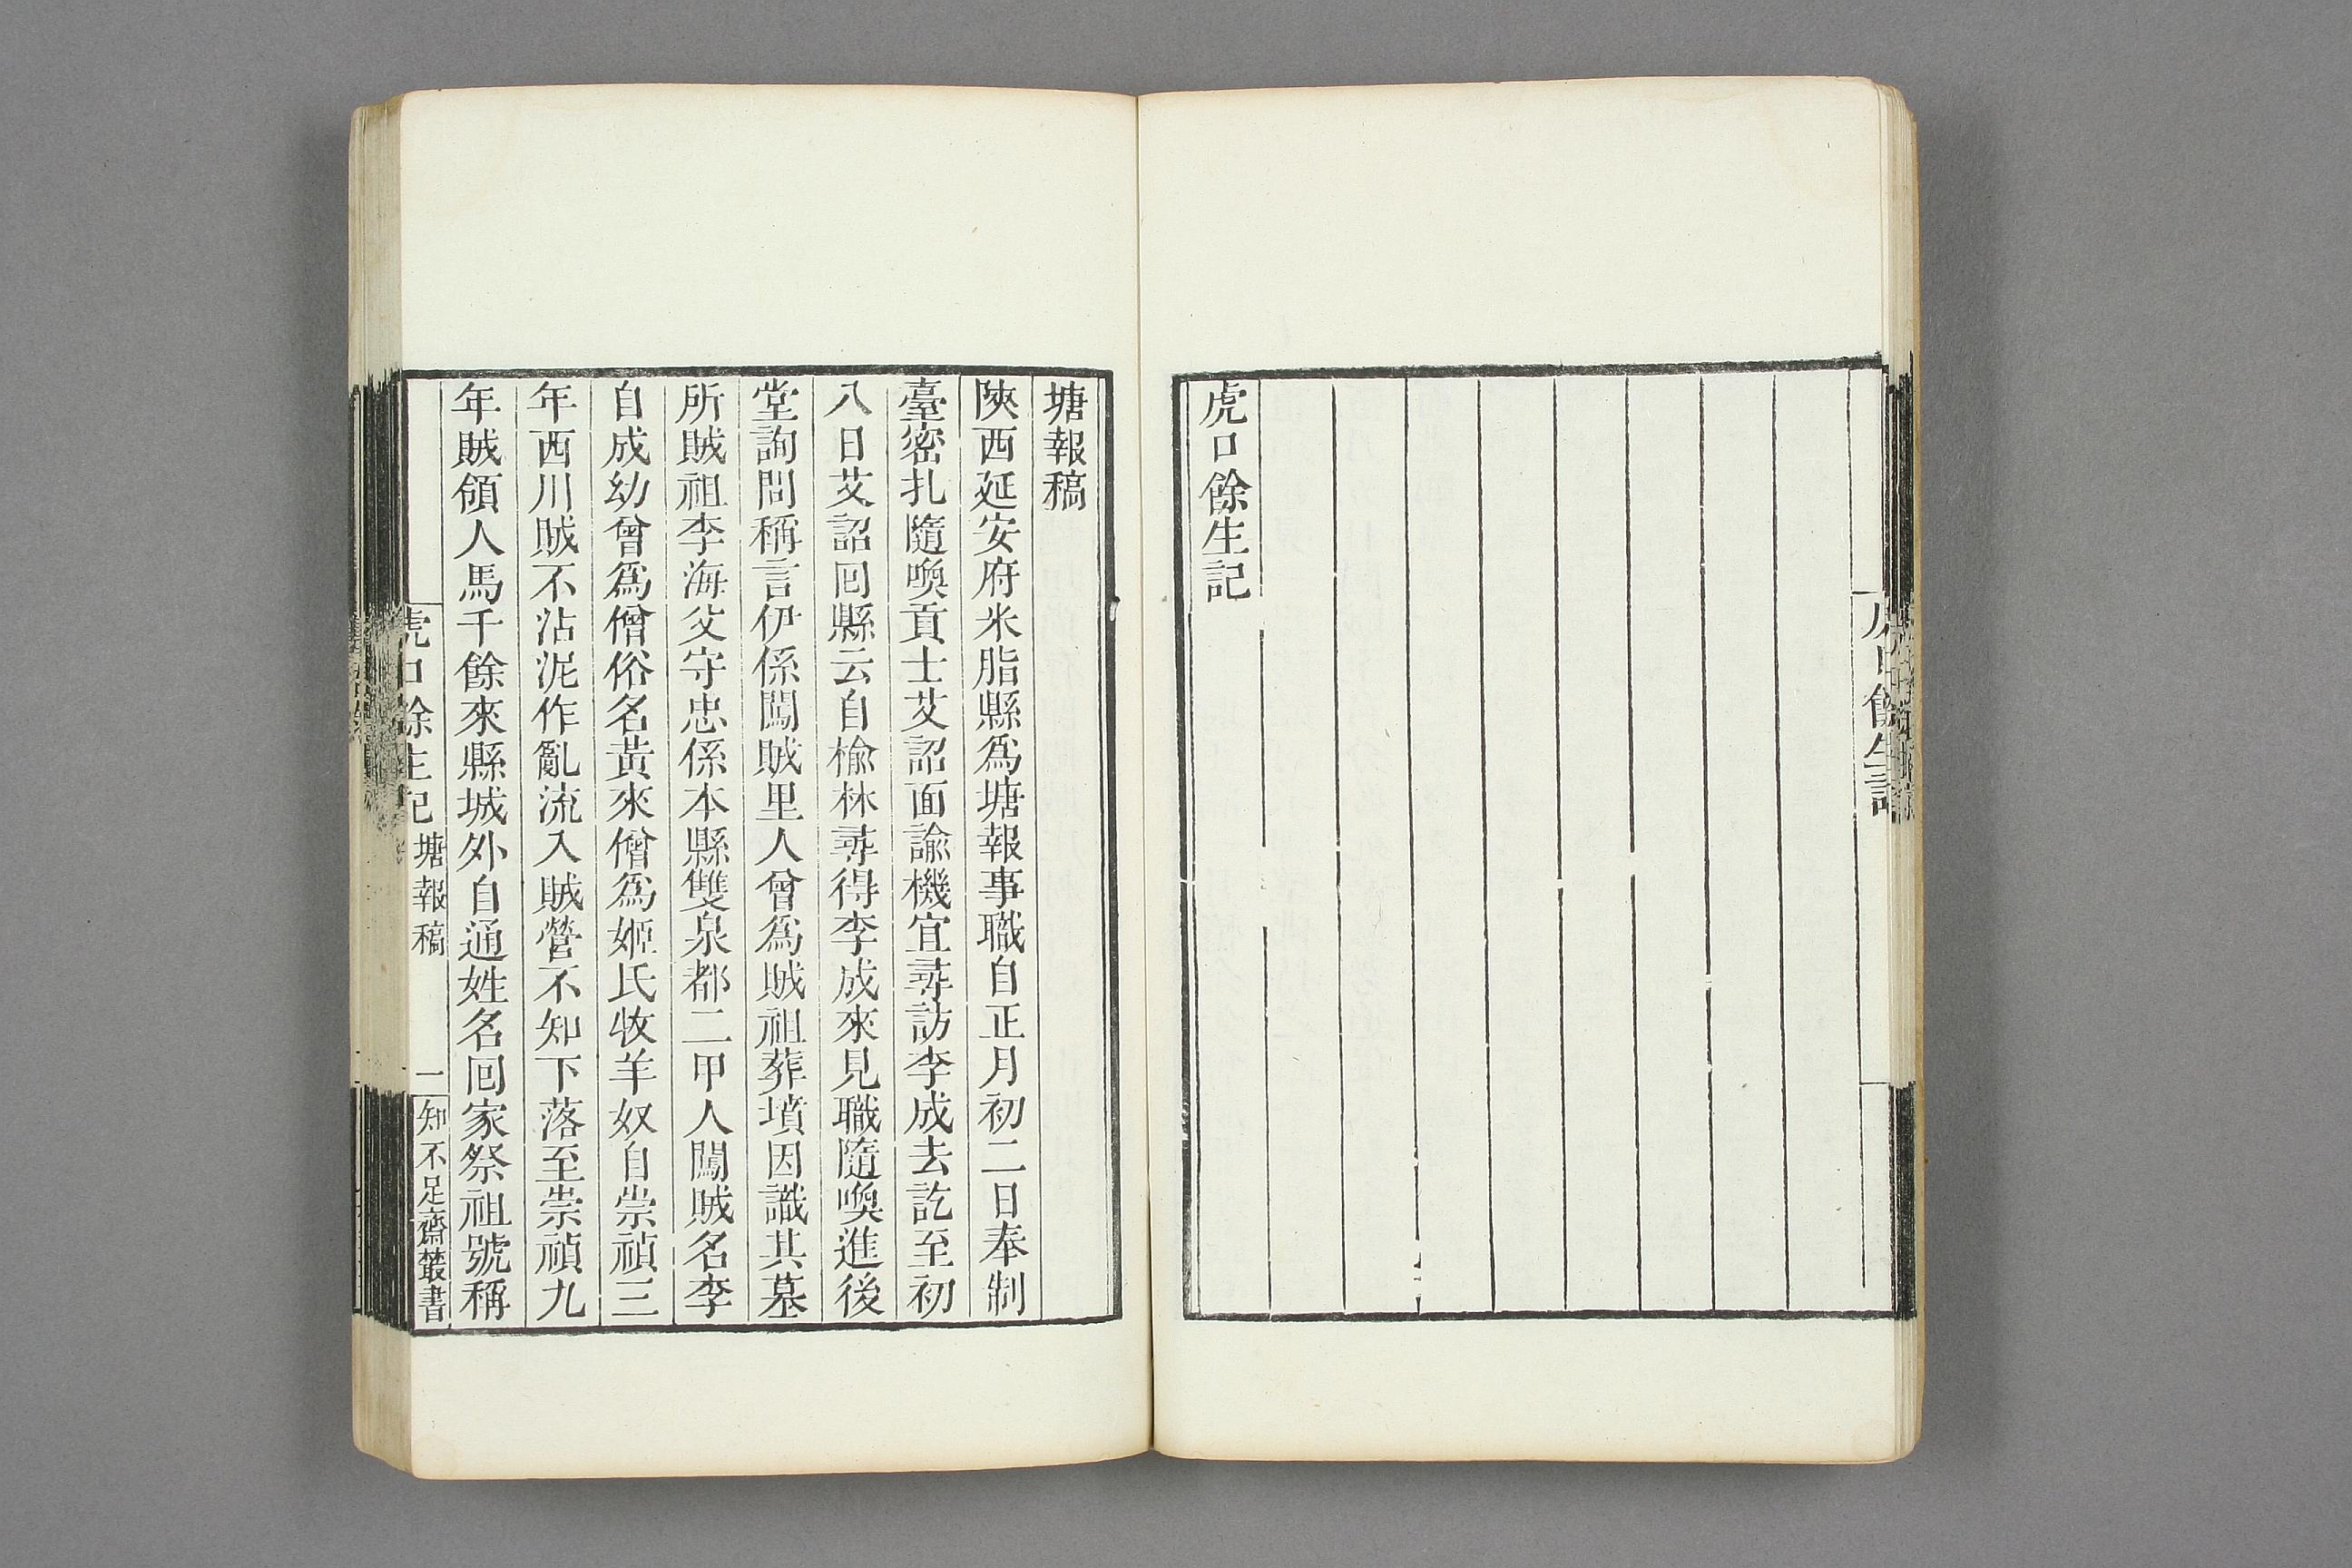 虎口餘生記
塘報稿
陝西延安府米脂縣爲塘報事職自正月初二日奉制
臺密扎隨喚貢士艾詔面諭機宜尋訪李成去訖至初
八日艾詔囘縣云自榆林尋得李成來見職隨喚進後
堂詢問稱言伊係闖賊里人曾爲賊祖葬墳因識其墓
所賊祖李海父守忠係本縣雙泉都二甲人闖賊名李
自成幼曾爲僧俗名黃來僧爲姬氏牧羊奴自崇禎三
年西川賊不沾泥作亂流入賊營不知下落至崇禎九
年賊領人馬千餘來縣城外自通姓名囘家祭祖號稱
虎口餘生記 塘報稿 一 知不足齋叢書